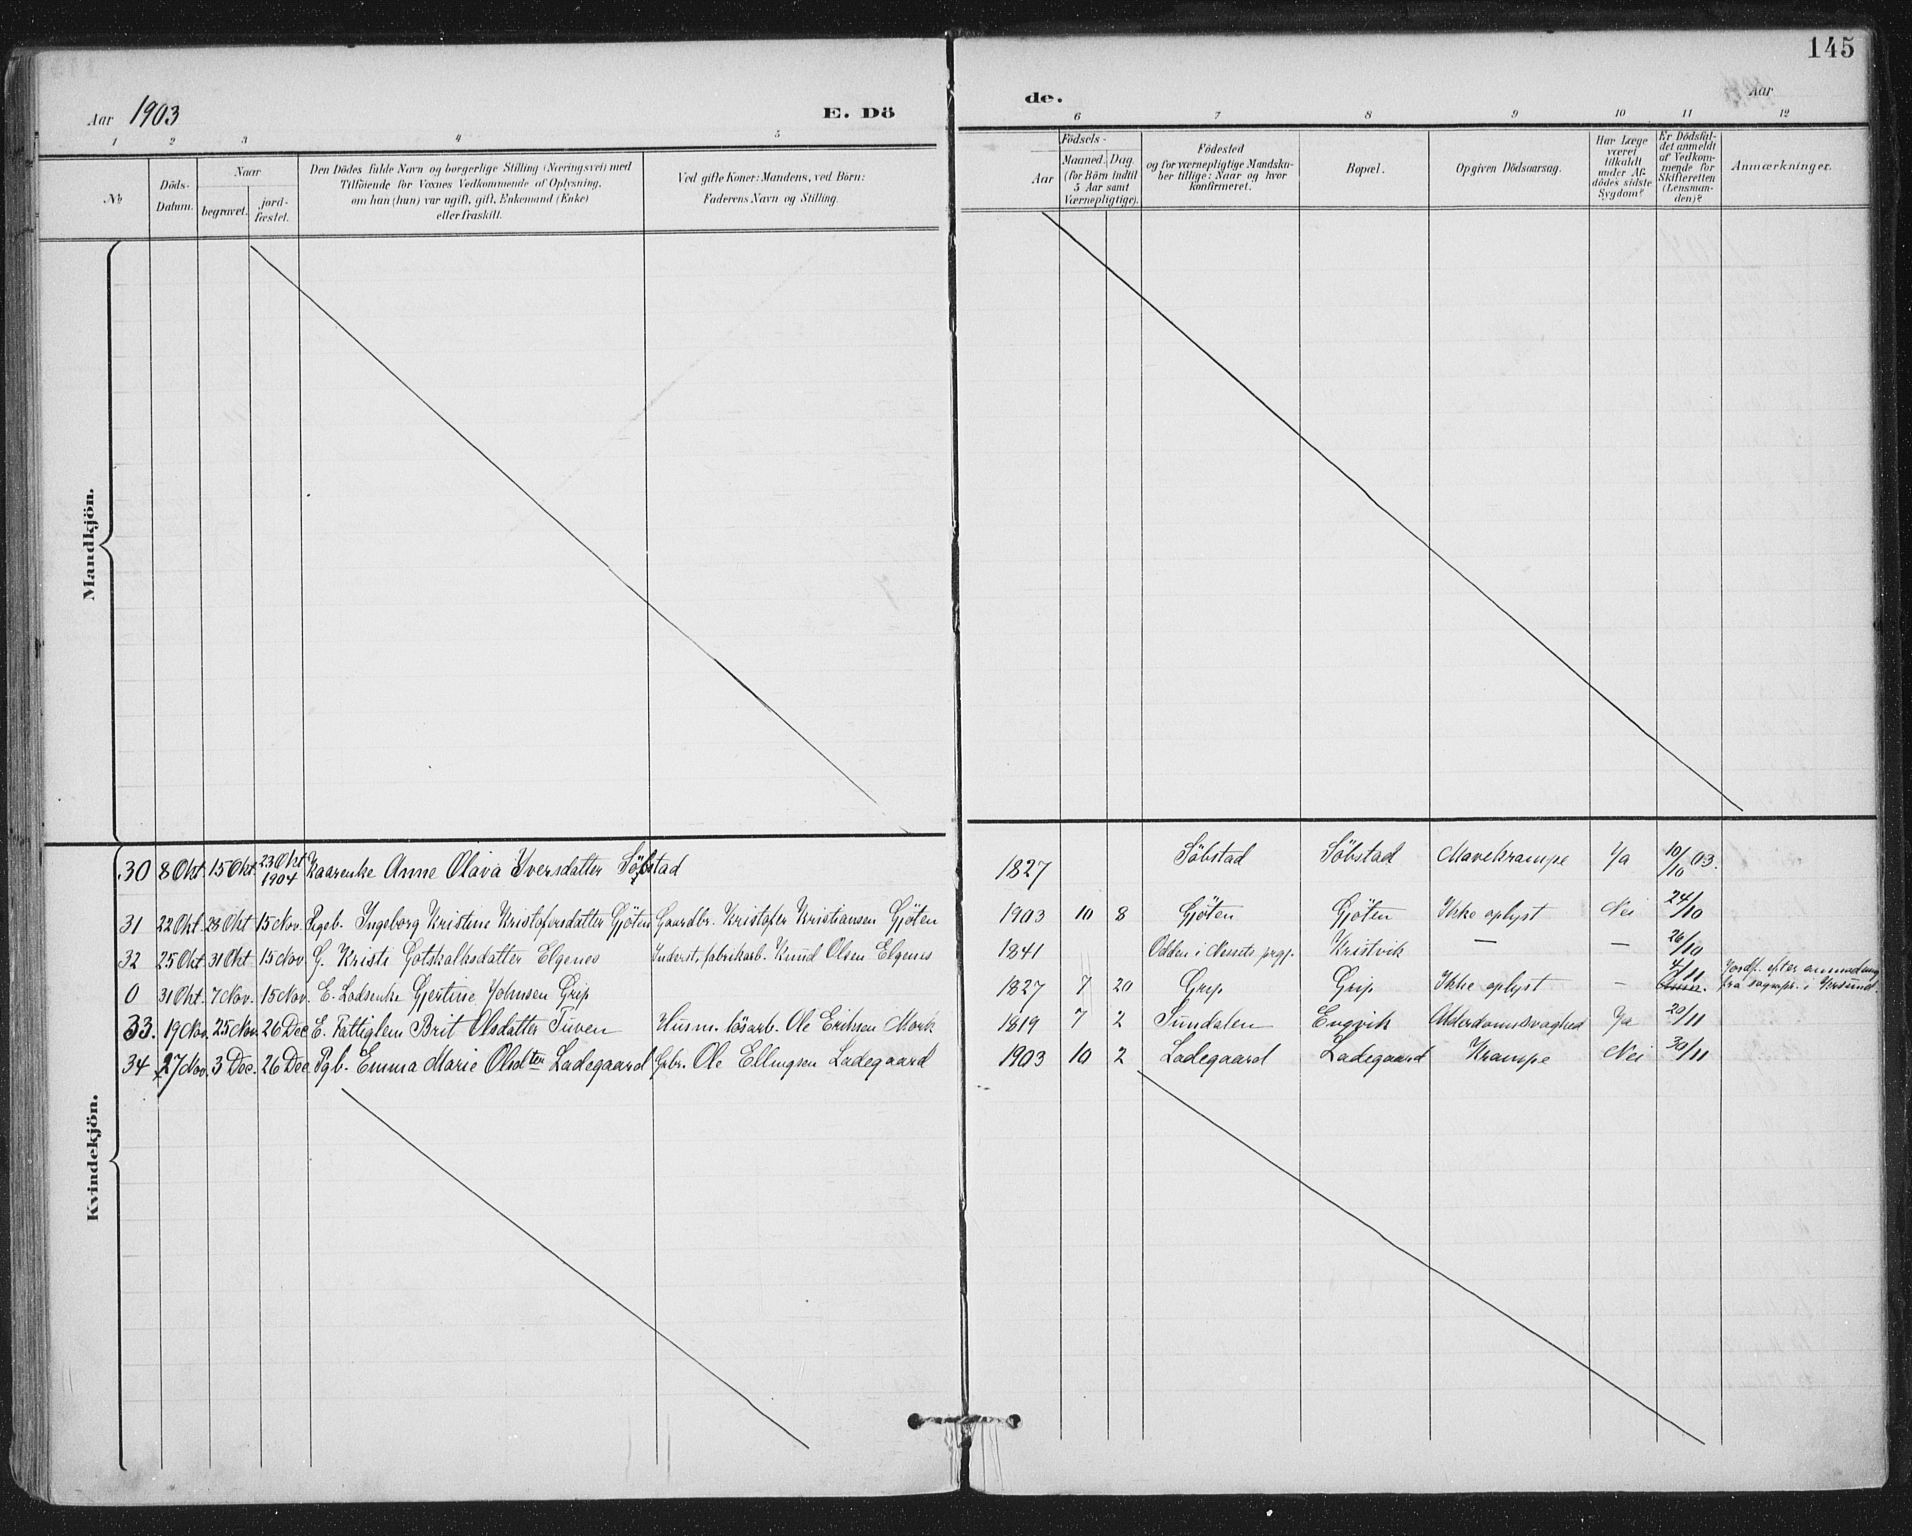 145
Aar 1903
E. Dö
de.
Aar
1 2 3 4 5
6 7 8 9 10 11 12
No
Döds-Datum.
Naar
begravet.
jord-fæstet.
Den Dödes fulde Navn og borgerlige Stilling (Næringsvei) med
Tilföiende for Voxnes Vedkommende af Oplysning,
om han (hun) var ugift, gift, Enkemand (Enke)
eller fraskilt.
Ved gifte Koner: Mandens, ved Börn:
Faderens Navn og Stilling.
Födsels-
Aar
Maaned. Dag
(for Börn indtil
5 Aar samt
Værnepligtige).
Födested
og for værnepligtige Mandska-
ber tillige: Naar og hvor
konfirmeret.
Bopæl.
Opgiven Dödsaarsag.
Har Læge
været
tilkaldt
under Af-
dödes sidste
Sygdom?
Er Dödsfal-
det anmeldt
af Vedkom-
mende for
Skifteretten
(Lensman-
den)?
Anmærkninger.
Mandkjön.
Kvindekjön.
30 8 Okt. 15 Okt. 23 Okt 1904 Kaarenke Anne Olava Iversdatter Söbstad 1827 Söbstad Söbstad Mavekrampe Ja 10/10 03.
31 22 Okt. 28 Okt 15 Nov. Pigeb. Ingeborg Kristine Kristofersdatter Gjöten Gaardbr. Kristofer Kristiansen Gjöten 1903 10 8 Gjöten Gjöten Ikke oplyst Nei 24/10
32 25 Okt 31 Okt 15 Nov. G. Kristi Gotskalksdatter Elgenes Inderst, fabrikarb. Knud Olsen Elgenes 1841 Odden i Nessets prgj. Kristvik — — 26/10
0 31 Okt. 7 Nov. 15 Nov. E. Lodsenke Gjertine Johnsen Grip 1827 7 20 Grip Grip Ikke oplyst — 4/11 Jordf. efter anmodning fra sognepr. i
33. 19 Nov. 25 Nov. 26 Dec E. Fattiglem Brit Olsdatter Tuven Husm. lösarb. Ole Eriksen Mork 1819 7 2 Sundalen Engvik Alderdomssvaghed Ja 20/11
34 27 Nov. 3 Dec. 26 Dec. Pgb. Emma Marie Olsdtter Ladegaard Gbr. Ole Ellingsen Ladegaard 1903 10 2 Ladegaard Ladegaard Krampe Nei 30/11